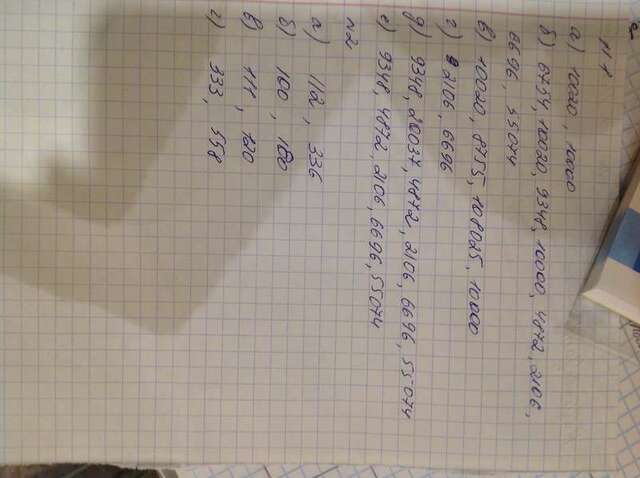 №1
а) 10020, 10000
б) 6754, 10020, 9348, 10000, 4872, 2106,
6696, 55074
в) 10020, 8755, 108025, 10000
г) 2106, 6696
д) 9348, 20037, 4872, 2106, 6696, 55074
е) 9348, 4872, 2106, 6696, 55074
№2
а) 112, 336
б) 100, 180
в) 111, 120
г) 333, 558